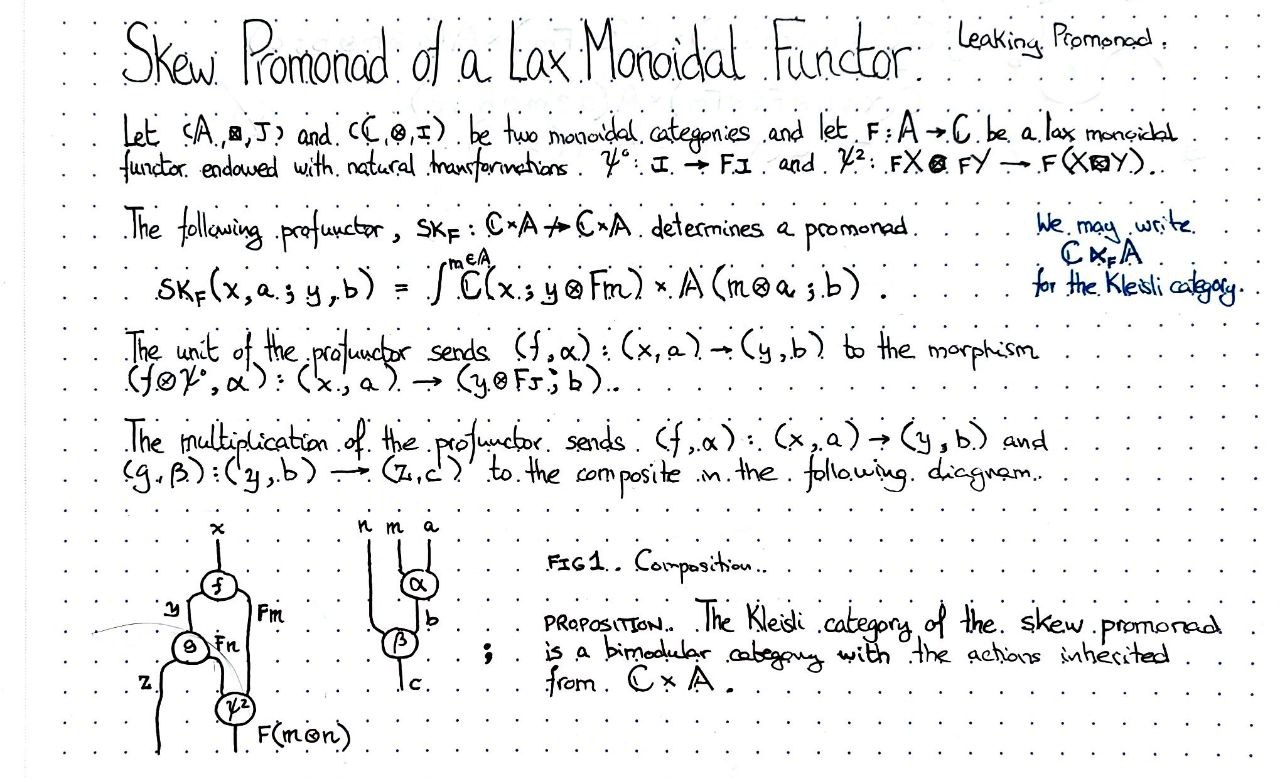 Skew Promonad of a Lax Monoidal Functor.
Leaking Promonad.
Let (𝔸, ⊠, J) and (ℂ, ⊗, I) be two monoidal categories and let F : 𝔸 → ℂ be a lax monoidal
functor endowed with natural transformations ψ⁰ : I → FJ and ψ² : FX ⊗ FY → F(X⊠Y).
The following profunctor, SK_F : ℂ×𝔸 ⇸ ℂ×𝔸 determines a promonad.
SK_F(x,a ; y,b) = ∫^{m∈𝔸} ℂ(x ; y ⊗ Fm) × 𝔸(m⊗a ; b).
We may write
ℂ ⋊_F 𝔸
for the Kleisli category.
The unit of the profunctor sends (f,α) : (x,a) → (y,b) to the morphism
(f⊗ψ⁰, α) : (x, a) → (y⊗FJ ; b).
The multiplication of the profunctor sends (f,α) : (x,a) → (y,b) and
(g,β) : (y,b) → (z,c) to the composite in the following diagram.
x
f
y Fm
g Fn
z
ψ²
F(m⊗n)
n m a
α
b
β
c
;
FIG 1. Composition.
PROPOSITION. The Kleisli category of the skew promonad
is a bimodular category with the actions inherited
from ℂ × 𝔸.